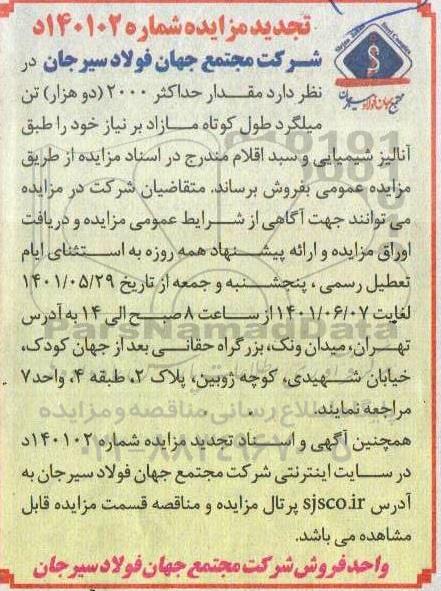 تجدید مزایده شماره ۱۴۰۱۰۲د
شرکت مجتمع جهان فولاد سیرجان در
نظر دارد مقدار حداکثر ۲۰۰۰ (دو هزار) تن
میلگرد طول کوتاه مازاد بر نیاز خود را طبق
آنالیز شیمیایی و سبد اقلام مندرج در اسناد مزایده از طریق
مزایده عمومی بفروش برساند. متقاضیان شرکت در مزایده
می توانند جهت آگاهی از شرایط عمومی مزایده و دریافت
اوراق مزایده و ارائه پیشنهاد همه روزه به استثنای ایام
تعطیل رسمی ، پنجشنبه و جمعه از تاریخ ۱۴۰۱/۰۵/۲۹
لغایت ۱۴۰۱/۰۶/۰۷ از ساعت ۸ صبح الی ۱۴ به آدرس
تهران، میدان ونک، بزرگراه حقانی بعد از جهان کودک،
خیابان شهیدی، کوچه ژوبین، پلاک ۲، طبقه ۴، واحد ۷
مراجعه نمایند.
همچنین آگهی و اسناد تجدید مزایده شماره ۱۴۰۱۰۲د
در سایت اینترنتی شرکت مجتمع جهان فولاد سیرجان به
آدرس sjsco.ir پرتال مزایده و مناقصه قسمت مزایده قابل
مشاهده می باشد.
واحد فروش شرکت مجتمع جهان فولاد سیرجان
مجتمع جهان فولاد سیرجان
ParsNamadData
پایگاه اطلاع رسانی مناقصه و مزایده